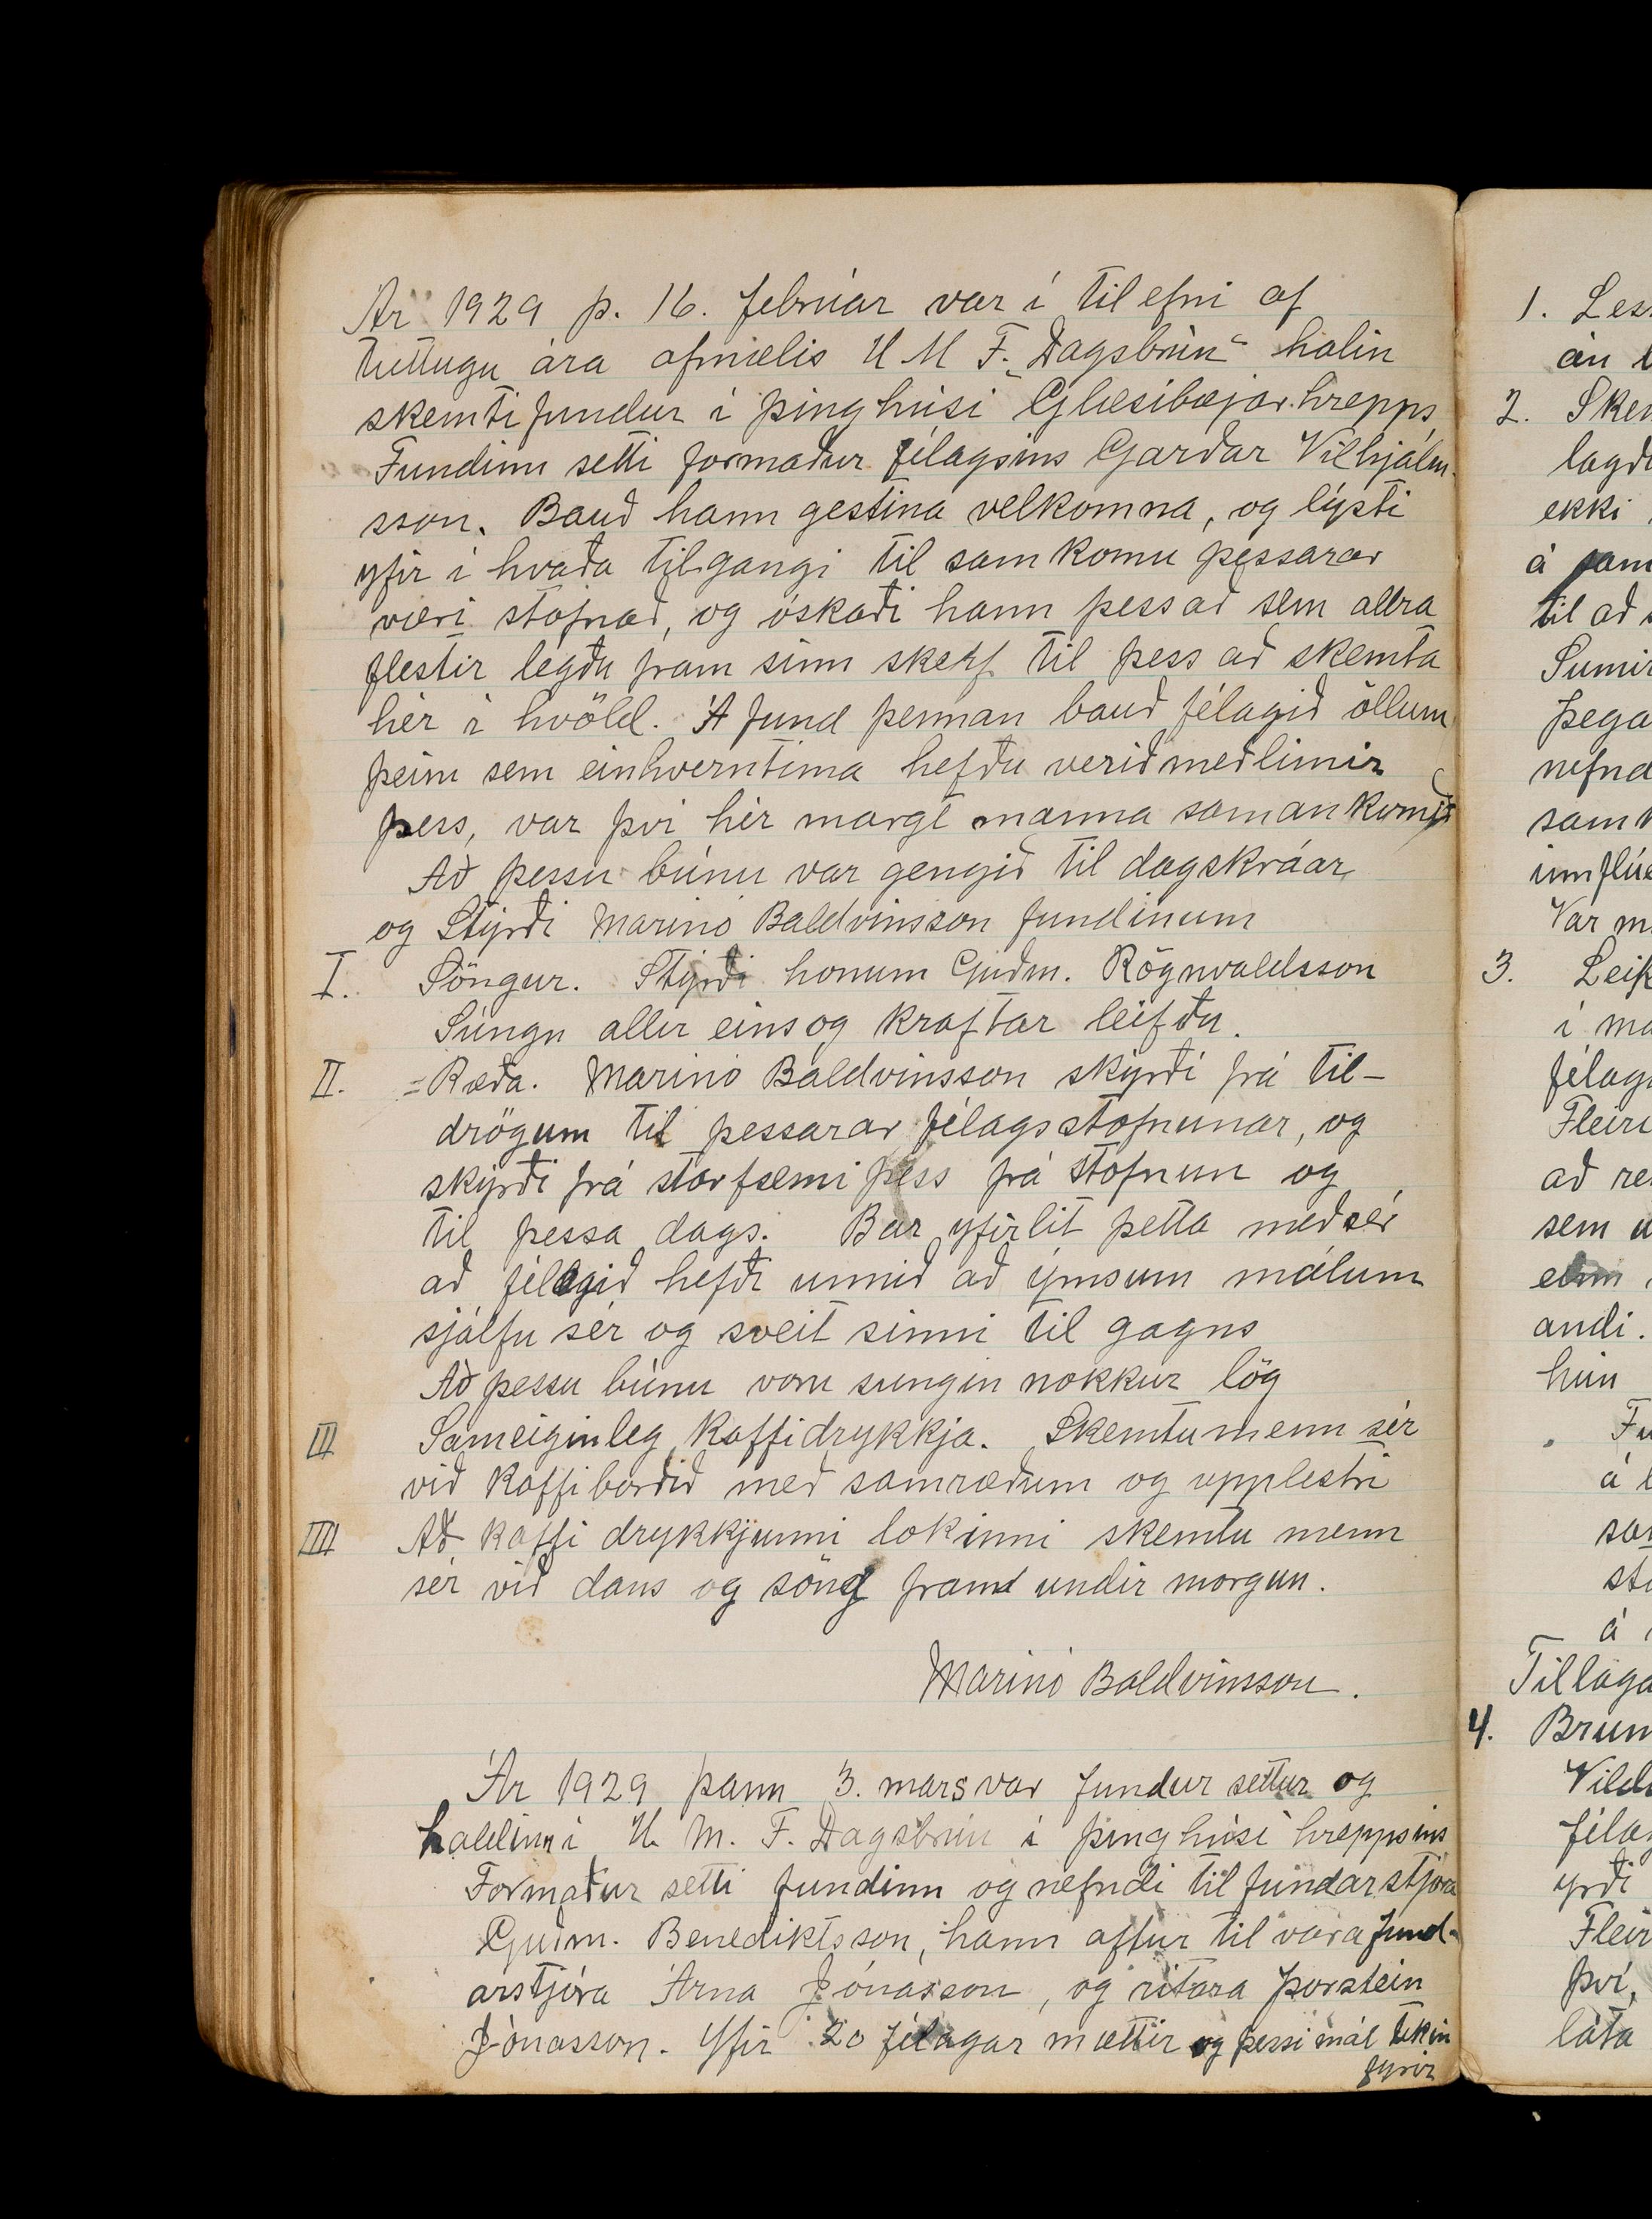 Ár 1929 þ. 16. febrúar var í tilefni af
tuttugu ára afmælis U M F. „Dagsbrún“ halin
skemtifundur í þinghúsi Glæsibæjar.hrepps,
Fundinn setti formaður félagsins Garðar Vilhjálm-
sson. Bauð hann gestina velkomna, og lýsti
yfir í hvaða tilgangi til samkomu þessarar
væri stofnað, og óskaði hann þess að sem allra
flestir legðu fram sinn skerf til þess að skemta
hér í kvöld. Á fund þennan bauð félagið öllum
þeim sem einhverntíma hefðu verið meðlimir
þess, var því hér margt manna saman komið
Að þessu búnu var gengið til dagskráar
og Stýrði Marinó Baldvinsson fundinum
I. Söngur. Stýrði honum Guðm. Rögnvaldsson
Súngu allir eins og kraftar leifðu.
II. =Ræða. Marinó Baldvinsson skýrði frá til-
drögum til þessarar félagsstofnunar, og
skýrði frá starfsemi þess frá stofnun og
til þessa dags. Bar yfirlit þetta með sér
að félagið hefði unnið að ýmsum málum
sjálfu sér og sveit sinni til gagns
Að þessu búnu voru sungin nokkur lög
III Sameiginleg kaffidrykkja. Skemtu menn sér
við kaffiborðið með samræðum og upplestri
IIII Að kaffi drykkjunni lokinni skemtu menn
sér við dans og söng fram undir morgun.
Marinó Baldvinsson.
Ár 1929 þann 3. mars var fundur settur og
haldinn í U. M. F. Dagsbrún í þinghúsi hreppsins
Formaður setti fundinn og nefndi til fundarstjóra
Guðm. Benediktsson, hann aftur til vara fund-
arstjóra Árna Jónasson, og ritara Þorstein
Jónasson. Yfir 20 félagar mættir og þessi mál tekin
fyrir
1. Les
án
2. Sken
lagð
ekki
á sam
til að
Sumir
þega
nefnd
samk
innflúe
Var m
3. Leik
í ma
félags
Fleiri
að re
sem
andi.
hún
Fu
á
sa
st
á
Tillaga
4. Brun
Vild
félag
yrði
Fleir
því,
láta